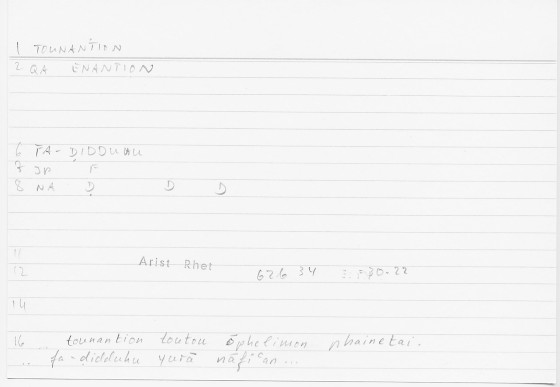 1 TOUNANTĪON
2 QA ENANTION
6 FA-ḌIDDUHU
7 JP F
8 NA Ḍ D D
11
12 Arist Rhet 62b 34 30-22
14
16 .. tounantion toutou ōphelimon phainetai.
.. fa-ḍidduhu yurā nāfiʿan ...